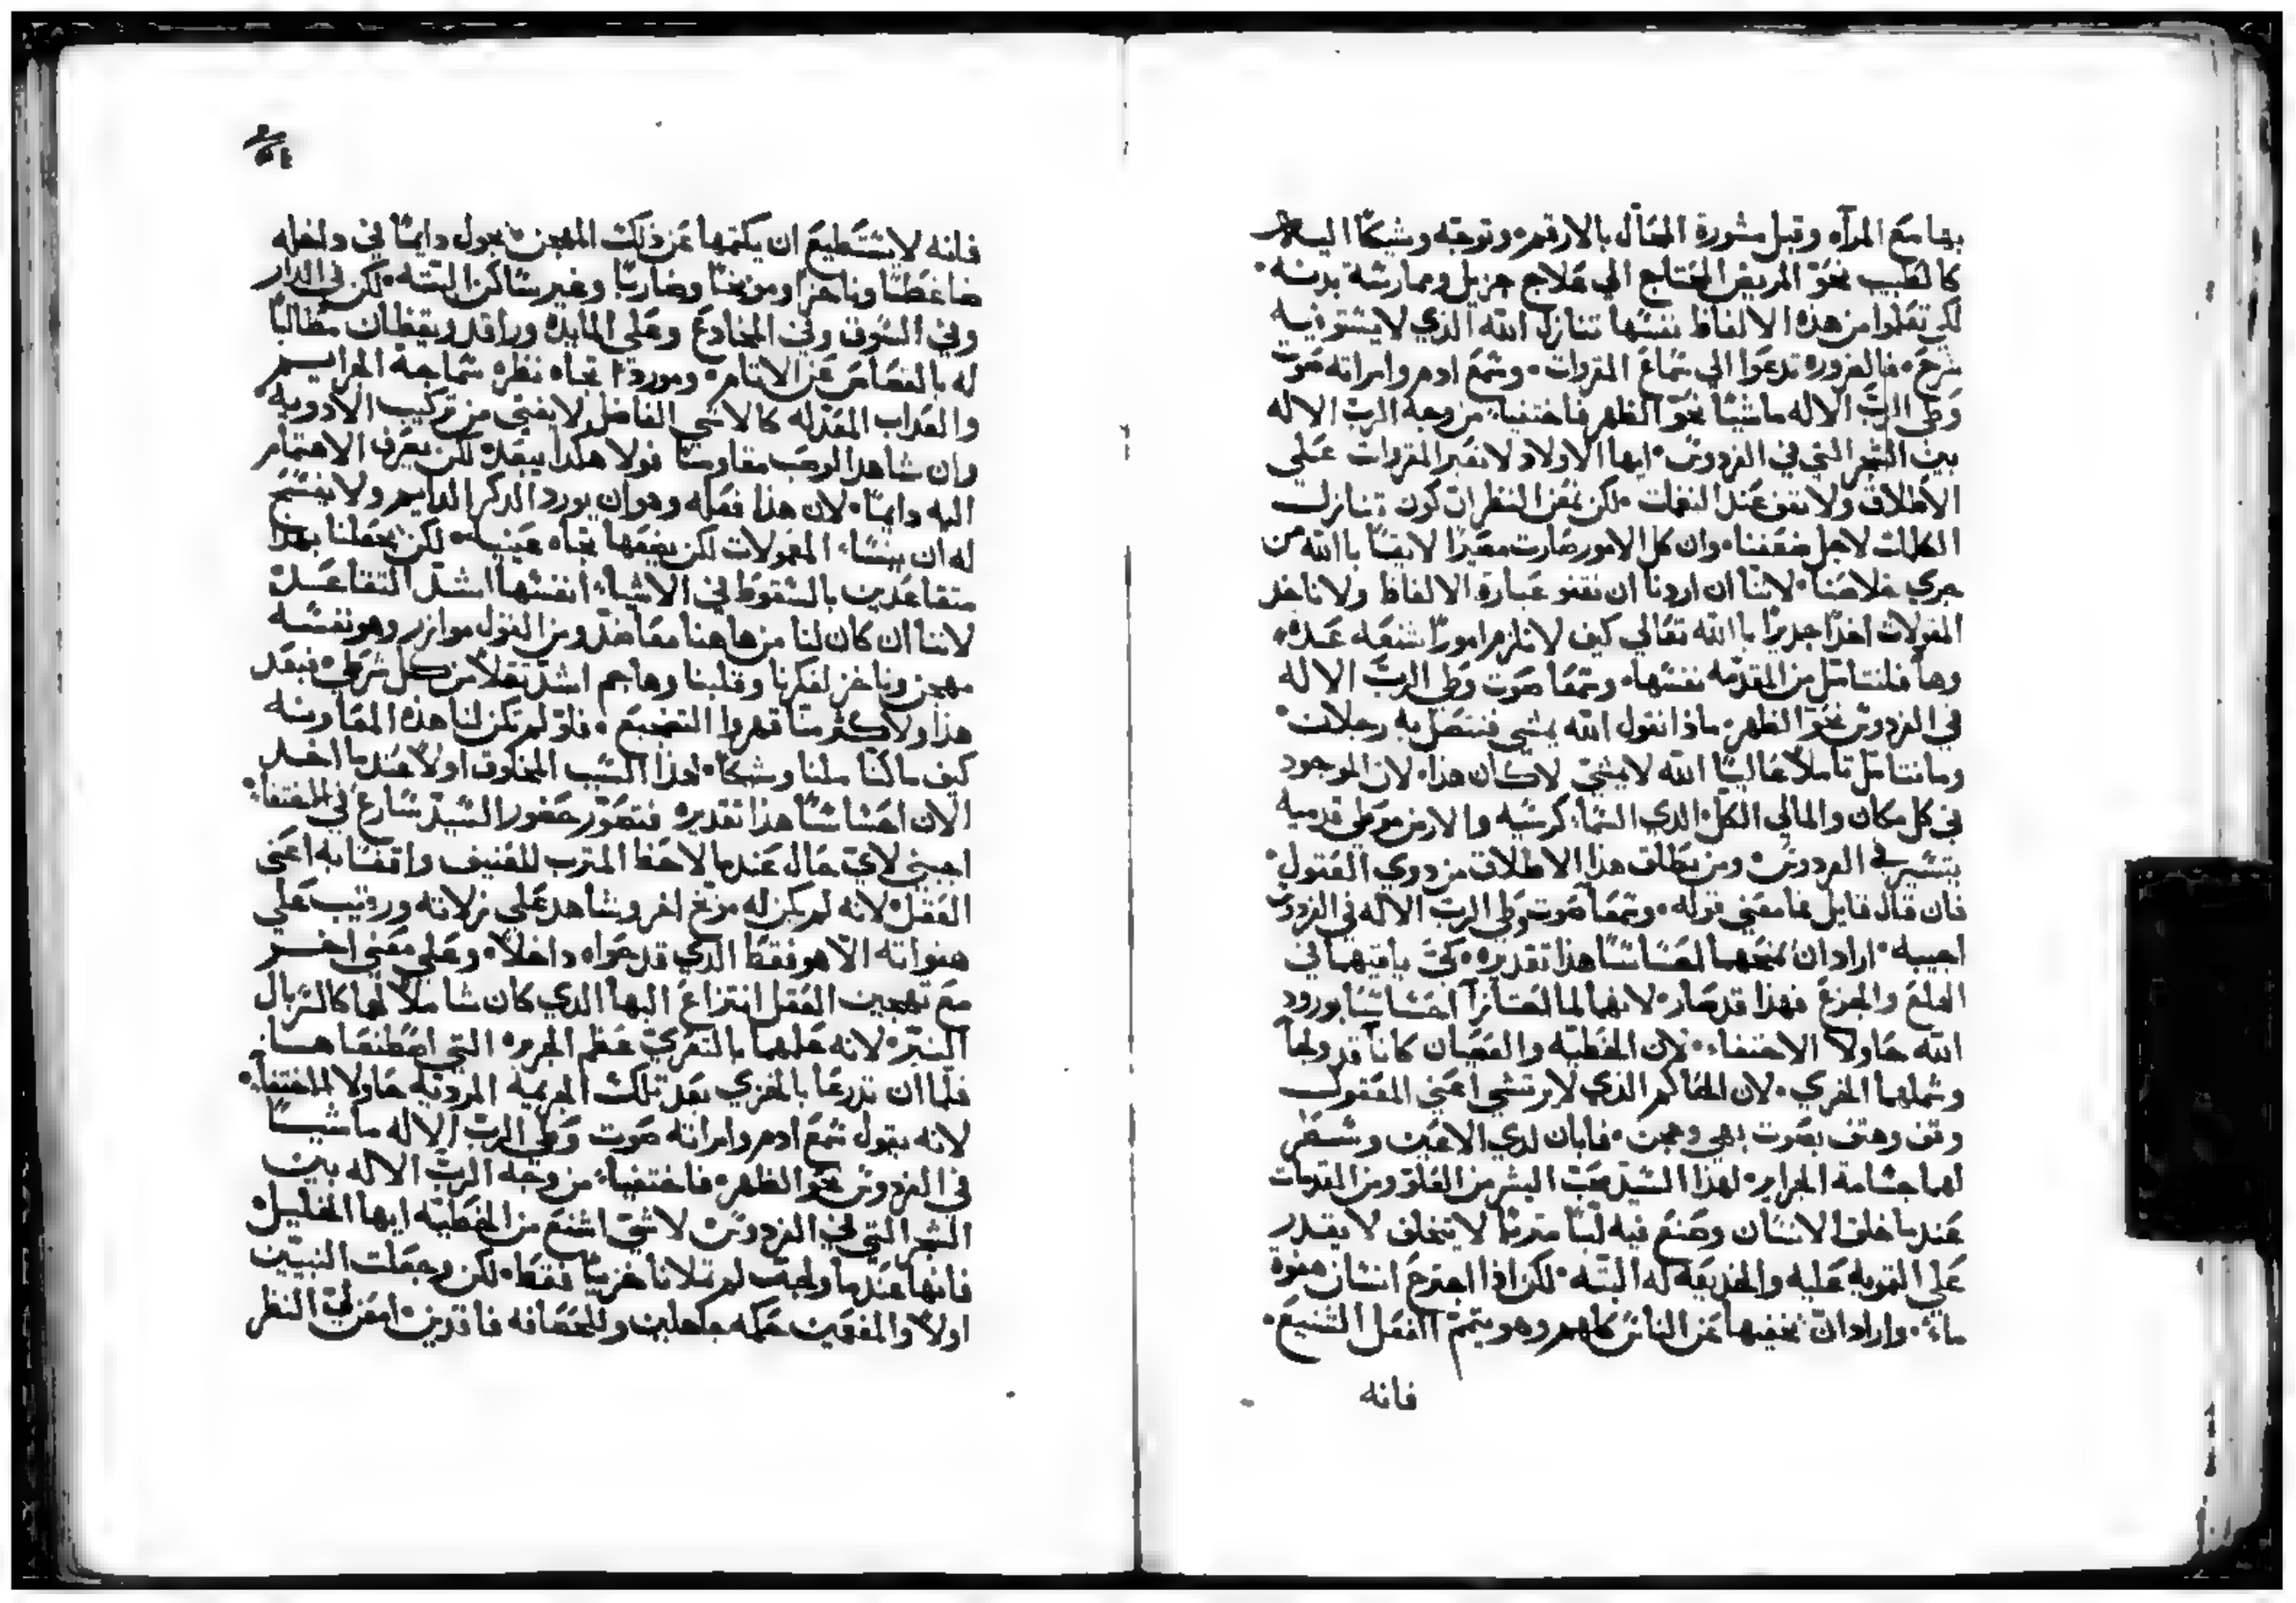 بها مع المرآه وقبل مشورة المحّال بالارقم وتوجّه وشيكًا اليه
كالطبيب نحوَ المريض المحتاج الي علاج جزيل وممارسة بدنه
لكي تعلموا من هذه الالفاظ نفسها تنازل الله الذي لا يستوفيه
شرح فالضروره تدعوا الي سماع المقروات وسمع ادم وامراته صوت
وطى الربّ الاله ماشيًا نحوَ الظهر فاختفيا من وجه الربّ الاله
بين الشجر التي في الفردوس ايها الاولاد لا نعبر المقروات علي
الاطلاق ولا نقف عند اللفظات لكن نمعن النظر ان كون تنازل
الكلمات لاجل ضعفنا وان كل الامور صارت معبرًا لايقًا باالله من
جري خلاصنا لاننا ان اردنا ان نقفو عبارة الالفاظ ولا ناخذ
المقولات اخذًا جديرًا باالله تعالي كيف لا تلزم امورًا شنعه عده
وها فلنتامّل من المقدّمه نفسها وسمعَا صوت وطى الربّ الاله
في الفردوس نحوَ الظهر ماذا نقول الله يمشي فنتصل به رجلان
وما نتامّل تاملاً عاليًا الله لا يمشي لا كان هذا لان الموجود
في كل مكان والمالي الكلّ الذي السما كرسيه والارض موطى قدميه
يتسيّر في الفردوس ومن يطلق هذا الاطلاق من ذوي العقول
فان قال قايل فما معني قوله وسمعَا صوت وطى الربّ الاله في الفردوس
اجيبه اراد ان يمنحهما احساسًا هذا تقديره كي ياتيهما في
الهلع والجزع فهذا قد صار لانهما لما احسّا احساسًا بورود
الله حاولا الاختفاء لان الخطيه والعصيان كانا قد ولجا
وشملهما الخزي لان الحاكم الذي لا يرتشي اعني المعقول
وقف وهتف بصوت بهي وهجن فابان لدي الاعين وسطر
لهما جسامة الجراير لهذا السيّد محبّ البشر من العلو ومن القدمات
عندما خلق الانسان وضع فيه لبًّا مدربًا لا يتخلق لا يقدر
علي التمويه عليه والخديعه له البتّه لكن اذا اجترح انسان هفوة
ماء واراد ان يخفيها عن الناس كلهم وهو يتمم الفعل الشنيع
فانه
فانه لا يستطيع ان يكتمها عن ذلك المهجن يجول دايمًا في داخله
ضاغطًا وناهزًا وموبخًا وضاربًا وغير ساكن البتّه لكن في الدار
وفي السوق وفي المخادع وعلى المايده وراقد ويقظان مطالبًا
له بالقصاص عن الاثام وموردًا تجاه نظره سماجة الجرايم
والعذاب المعدّ له كالاسي الفاضل لا يفتى من تركيب الادويه
وان شاهد الوصب مقاومًا فولا هكذا يبعد لكن يعرف الاهتمام
اليه دايمًا لان هذا فعله وهو ان يورد الذكر الدايم ولا يفسح
له ان ينسا المفعولات لكن يضعها تجاه عينيه لكن يجعلنا بهذا
متقاعدين بالسقوط في الاشياء انفسها اشد التقاعد
لاننا ان كان لنا من هاهنا معاضد ومن القول موازر وهو نفسه
مهجن وناخز لفكرنا وقلبنا وهاجم اشد ثقلاً من كل شرطي فبعد
هذا ولا كثر ما قهروا التضجيع فلو لم تكن لنا هذه المعاونه
كيف ما كنا ملنا وشيكًا لهذا السبب المخلوق اولا عندما اخذ
الان احساسًا هذا تقديره فتصوّر حضور السيّد سارع في الاختفاء
اجبني لايّ حال عندما لاحظ المترب للعنيف واقفًا به اعني
العقل لانه لم يكن له موبّخ اخر وشاهد علي زلاته ورقيب علي
هفواته الّا هو فقط الذي قد حواه داخلاً وعلي معني اخر
مع تهجين العقل انتزاع البها الذي كان شاملاً لهما كالسربال
النيّر لانه علمهما بالتعري عظم الجرم التي اصطنعاها
فلما ان تدرعا بالخزي بعد تلك الجريمه المرديه حاولا الاختفاء
لانه يقول سمع ادم وامراته صوت وطي الربّ الاله ماشيًا
في الفردوس نحو الظهر فاختفيا من وجه الربّ الاله بين
الشجر التي في الفردوس لا شيّ اشنع من الخطيّه ايها الخليل
فانها عندما ولجت لم تملانا خزيًا فقط لكن وجعلت النبيّين
اولاً والمفعمين حكمه جاهلين وللحصافه فاقدين امعن لي النظر